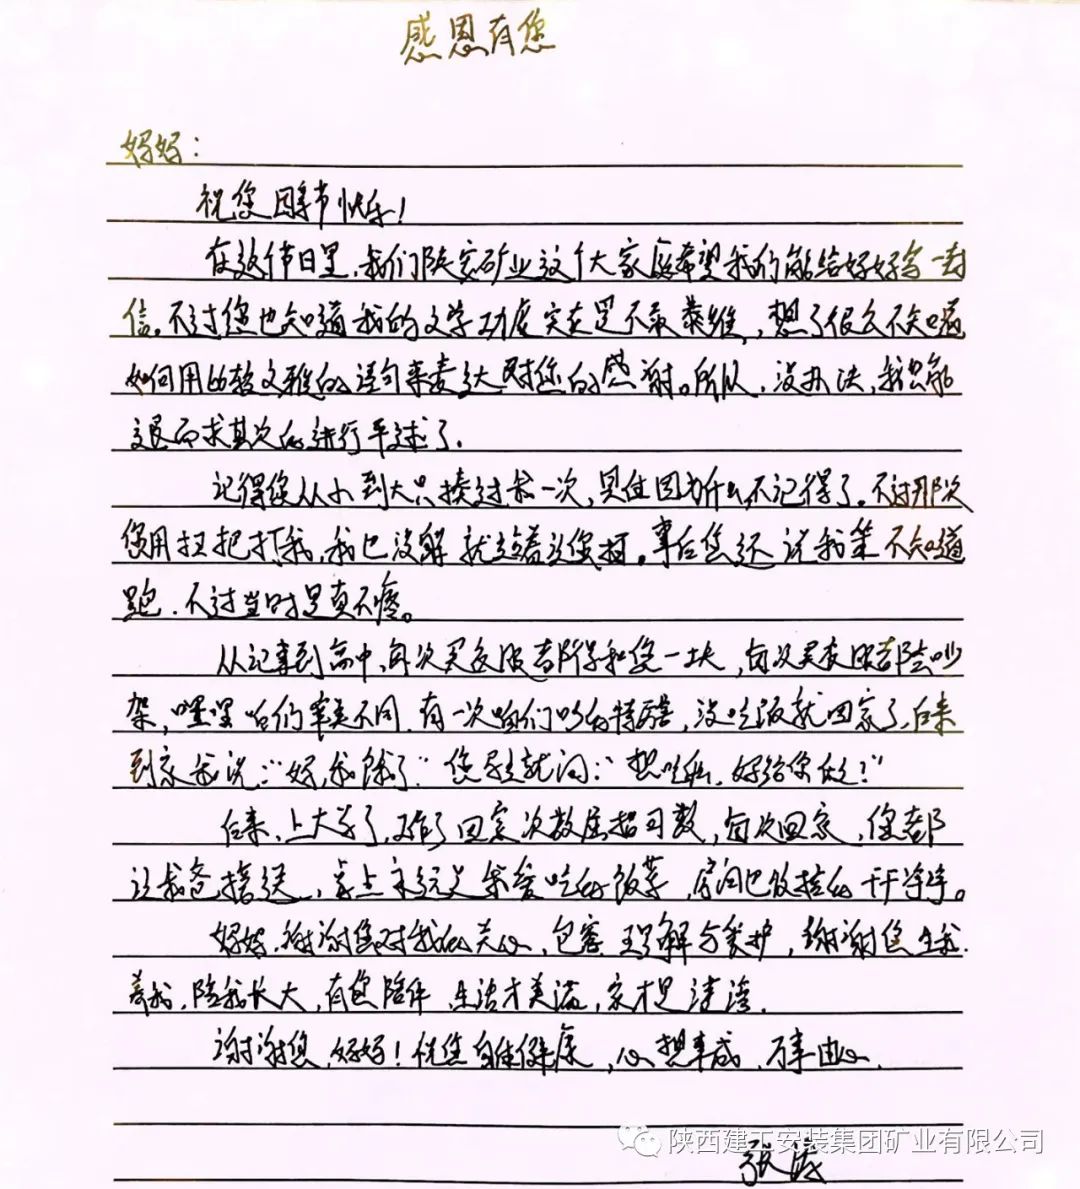 感恩有您
妈妈：
祝您母亲节快乐！
在这个节日里，我们陕安矿业这个大家庭希望我们能给妈妈写一封
信。不过您也知道我的文学功底实在是不敢恭维，想了很久不知道
如何用比较文雅的语句来表达对您的感谢。所以，没办法，我只能
退而求其次的进行平述了。
记得您从小到大只揍过我一次，具体因为什么不记得了。不过那次
您用扫把打我，我也没躲就站着让您打。事后您还说我笨不知道
跑，不过当时是真不疼。
从记事到高中，每次买衣服都得和您一块，每次买衣服都陪吵
架，嘿嘿咱们审美不同，有一次咱们吵的特凶，没吃饭就回家了，后来
到家我说：“妈，我饿了”您马上就问：“想吃啥，妈给你做？”
后来，上大学了，工作了回家次数屈指可数，每次回家，您都
让我爸接送，桌上永远是我爱吃的饭菜，房间也收拾的干干净净。
妈妈，谢谢您对我的关心，包容，理解与爱护，谢谢您生我，
养我，陪我长大，有您陪伴，生活才美满，家才是港湾。
谢谢您，妈妈！祝您身体健康，心想事成，万事由心。
张涛
陕西建工安装集团矿业有限公司